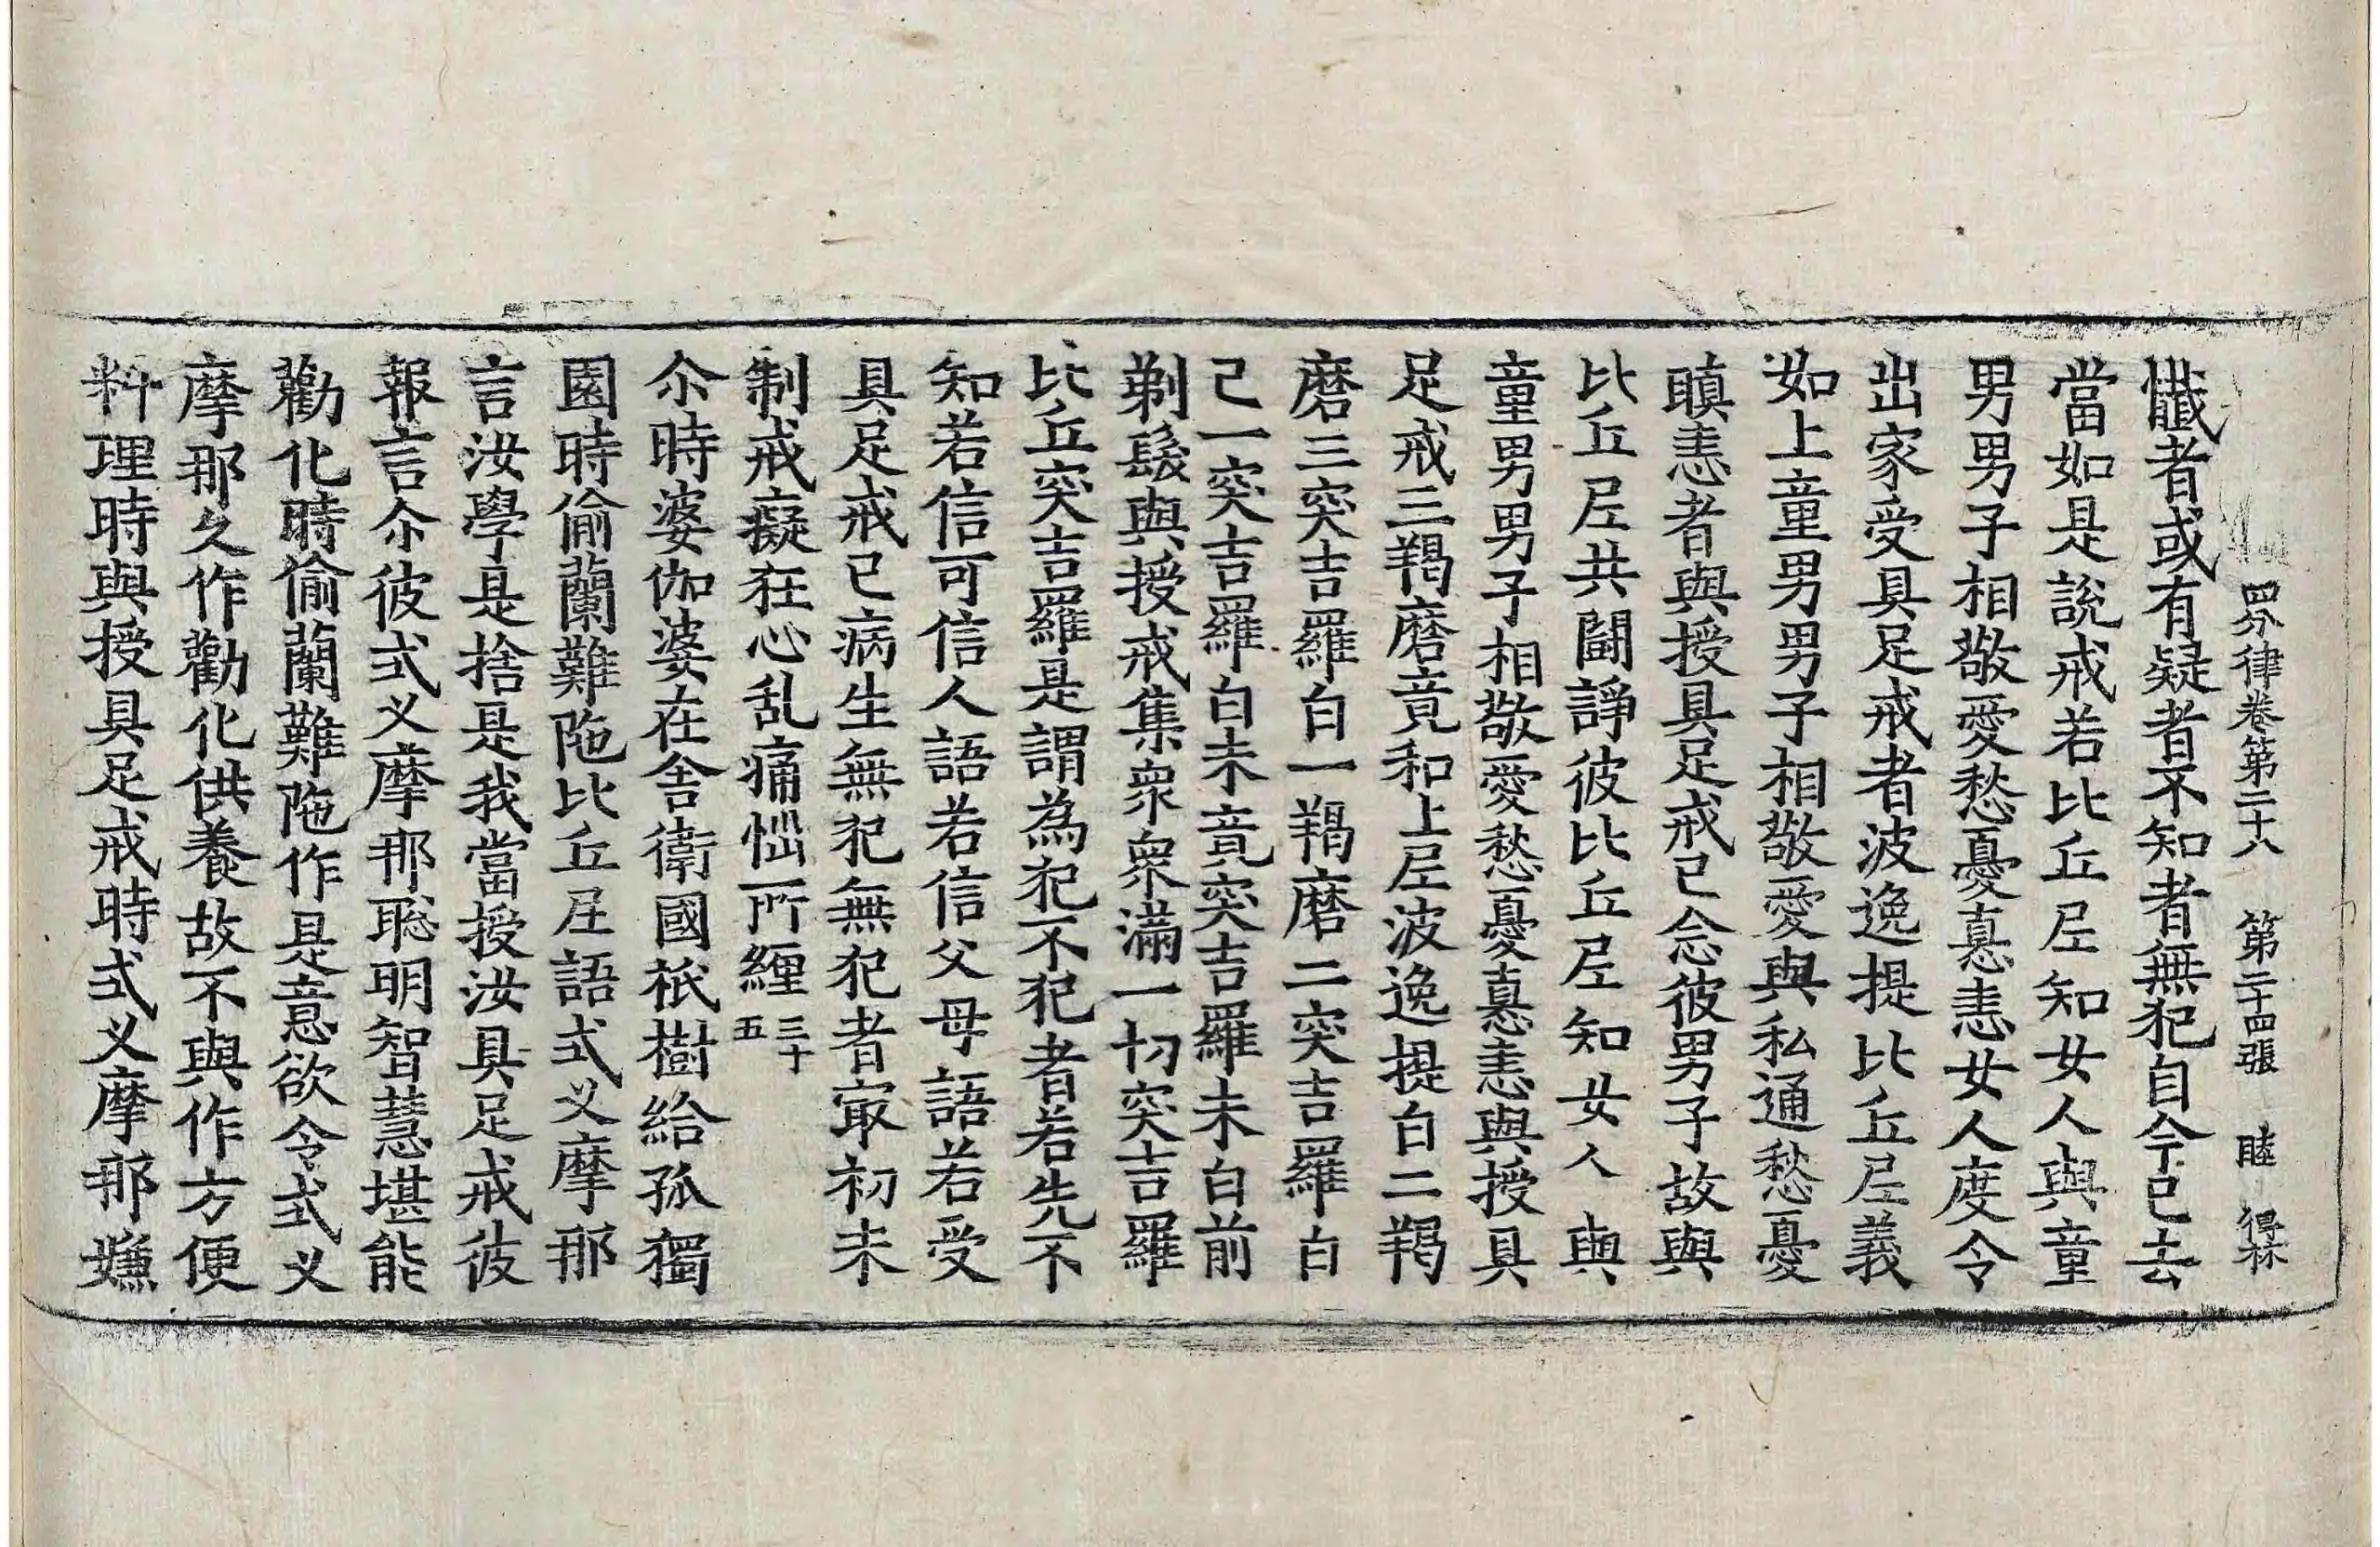 四分律卷第二十八　第二十四張　睦　得林
懺者或有疑者不知者無犯自今已去
當如是說戒若比丘尼知女人與童
男男子相敬愛愁憂恚女人度令
出家受具足戒者波逸提比丘尼義
如上童男男子相敬愛與私通愁憂
瞋恚者與授具足戒已念彼男子故與
比丘尼共鬪諍彼比丘尼知女人與
童男男子相敬愛愁憂恚與授具
足戒三羯磨竟和上尼波逸提白二羯
磨三突吉羅白一羯磨二突吉羅白
已一突吉羅白未竟突吉羅未白前
剃髮與授戒集衆衆滿一切突吉羅
比丘突吉羅是謂為犯不犯者若先不
知若信可信人語若信父母語若受
具足戒已病生無犯無犯者冣初未
制戒癡狂心乱痛惱所纏三十五
尒時婆伽婆在舍衛國祇樹給孤獨
園時偷蘭難陁比丘尼語式叉摩那
言汝學是捨是我當授汝具足戒彼
報言尒彼式叉摩那聡明智慧堪能
勸化時偷蘭難陁作是意欲令式叉
摩那久作勸化供養故不與作方便
料理時與授具足戒時式叉摩那嫌